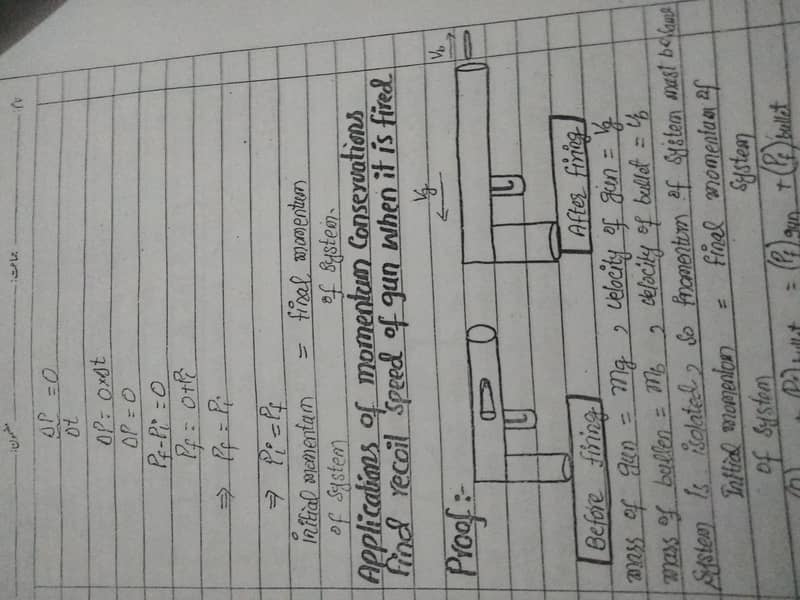 ΔP = 0
Δt
ΔP = 0xΔt
ΔP = 0
Pf - Pi = 0
Pf = 0+Pi
⇒ Pf = Pi
⇒ Pi = Pf
initial momentum = final momentum
of system of system.
Applications of momentum Conservations
find recoil speed of gun when it is fired
Proof:-
Vg Vb
Before firing After firing
mass of gun = mg , velocity of gun = Vg
mass of bullen = mb , velocity of bullet = Vb
System is isolated, so momentum of system must be same
Initial momentum = final momentum of
of system system
Pi) bullet = (Pf) gun + (Pf) bullet